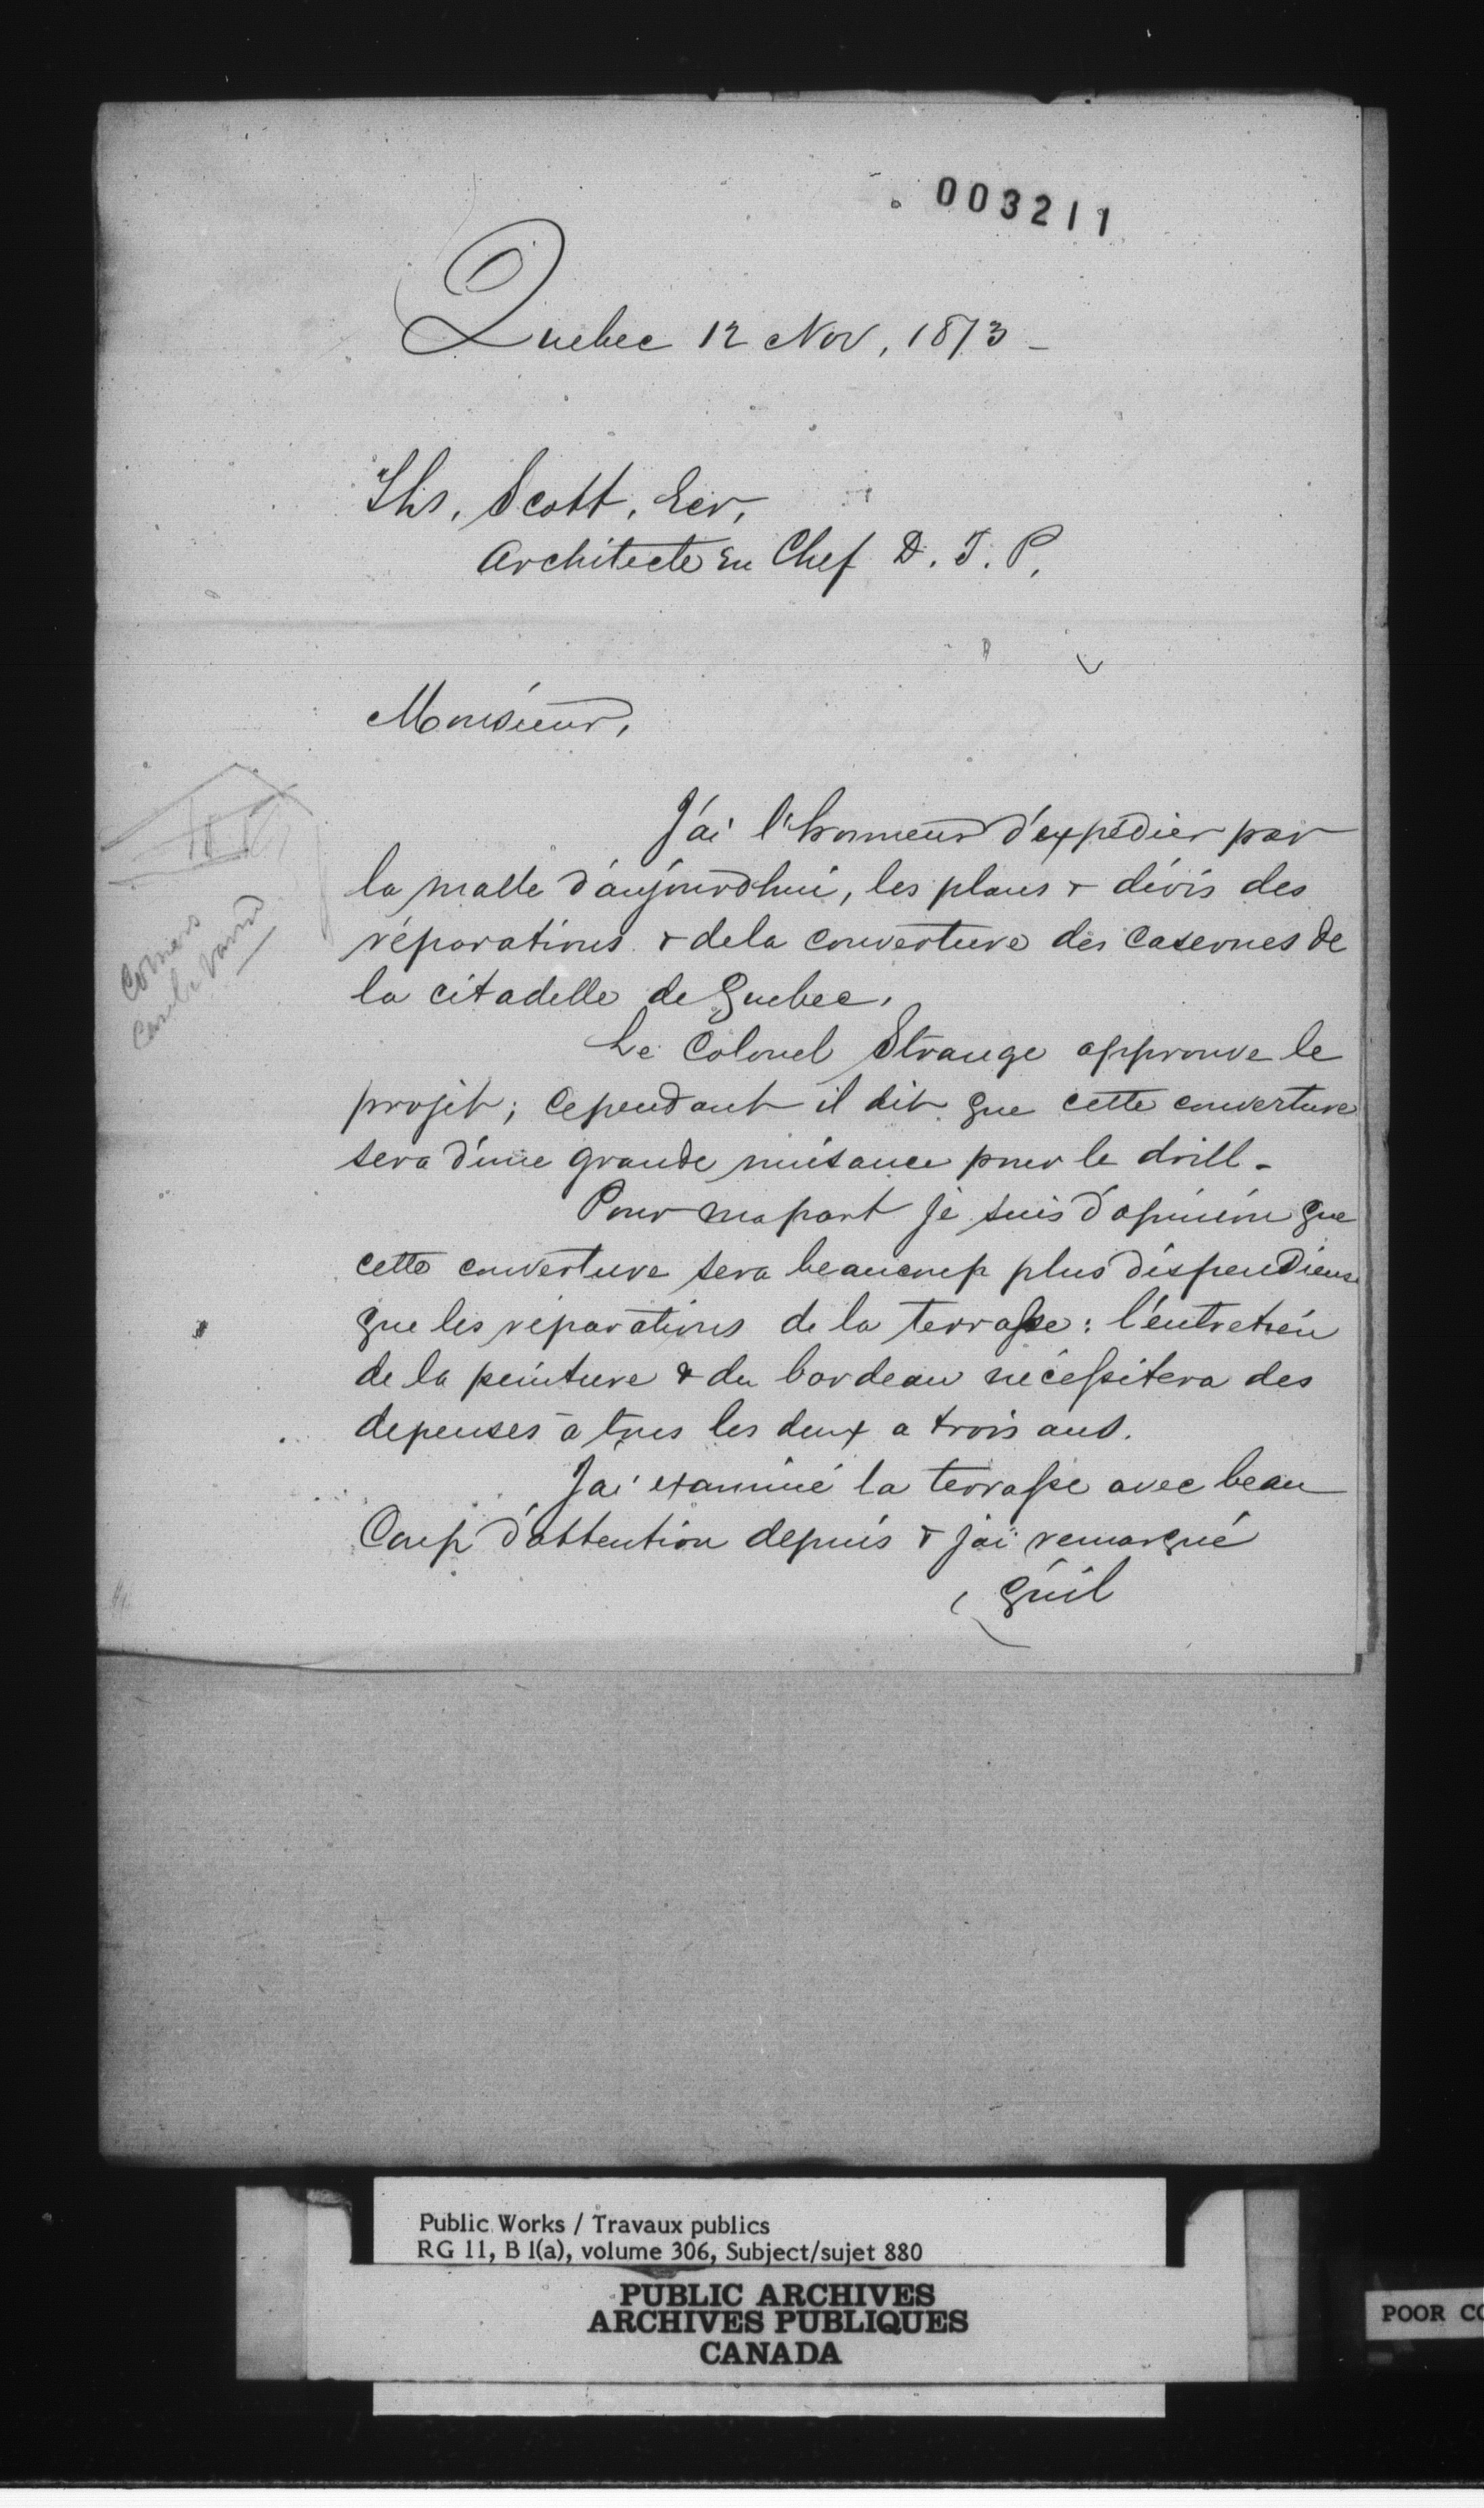 003211
Quebec 12 Nov, 1873 -
Ths, Scott, Ecr,
Architecte En Chef D. T. P.
Monsieur,
J'ai l'honneur d'expédier par
la malle d'aujourdhui, les plans & dévis des
réparations & dela couverture des casernes de
la citadelle de Quebec.
Le Colonel Strange approuve le
projet; cependant il dit que cette couverture
sera d'une grande nuisance pour le drill -
Pour ma part je suis d'opinion que
cette couverture sera beaucoup plus dispendieuse
que les réparations de la terrasse: l'entretien
de la peinture & du bardeau nécessitera des
depenses à tous les deux a trois ans.
J'ai examiné la terrasse avec beau
Coup d'attention depuis & j'ai remarqué
qu'il
Corners
can be
Public Works / Travaux publics
RG 11, B 1(a), volume 306, Subject/sujet 880
PUBLIC ARCHIVES
ARCHIVES PUBLIQUES
CANADA
POOR CO